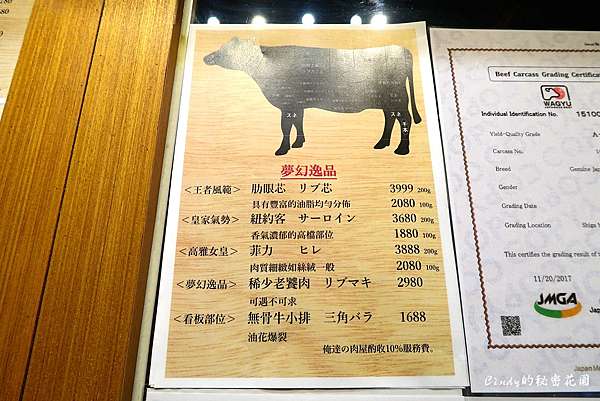 スネ
スネ
夢幻逸品
<王者風範> 肋眼芯 リブ芯 3999 200g
具有豐富的油脂均勻分佈 2080 100g
<皇家氣勢> 紐約客 サーロイン 3680 200g
香氣濃郁的高檔部位 1880 100g
<高雅女皇> 菲力 ヒレ 3888 200g
肉質細緻如絲絨一般 2080 100g
<夢幻逸品> 稀少老饕肉 リブマキ 2980
可遇不可求
<看板部位> 無骨牛小排 三角バラ 1688
油花爆裂
俺達の肉屋酌收10%服務費。
Beef Carcass Grading Certifica
WAGYU
Individual Identification No. 15100
Yield-Quality Grade A-
Carcass No.
Breed Genuine Japa
Gender
Grading Date
Grading Location Shiga
This certifies the grading result of t
11/20/2017
JMGA
Japa
Japan Me
Cindy的秘密花園